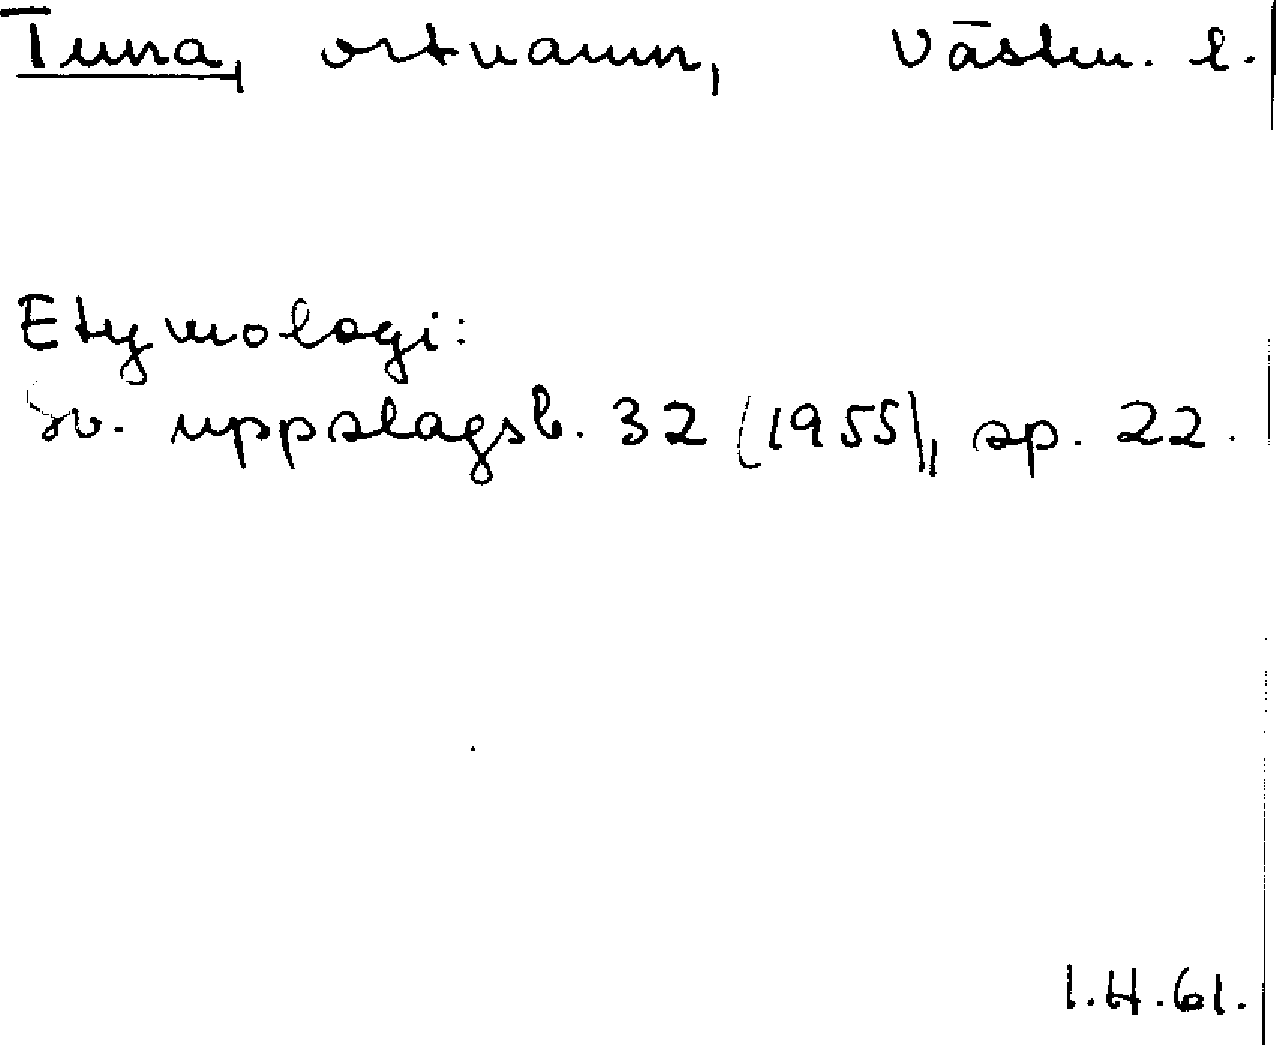 Tuna, ortnamn, Västm. l.
Etymologi:
Sv. uppslagsb. 32 (1955), sp. 22.
I.H.61.